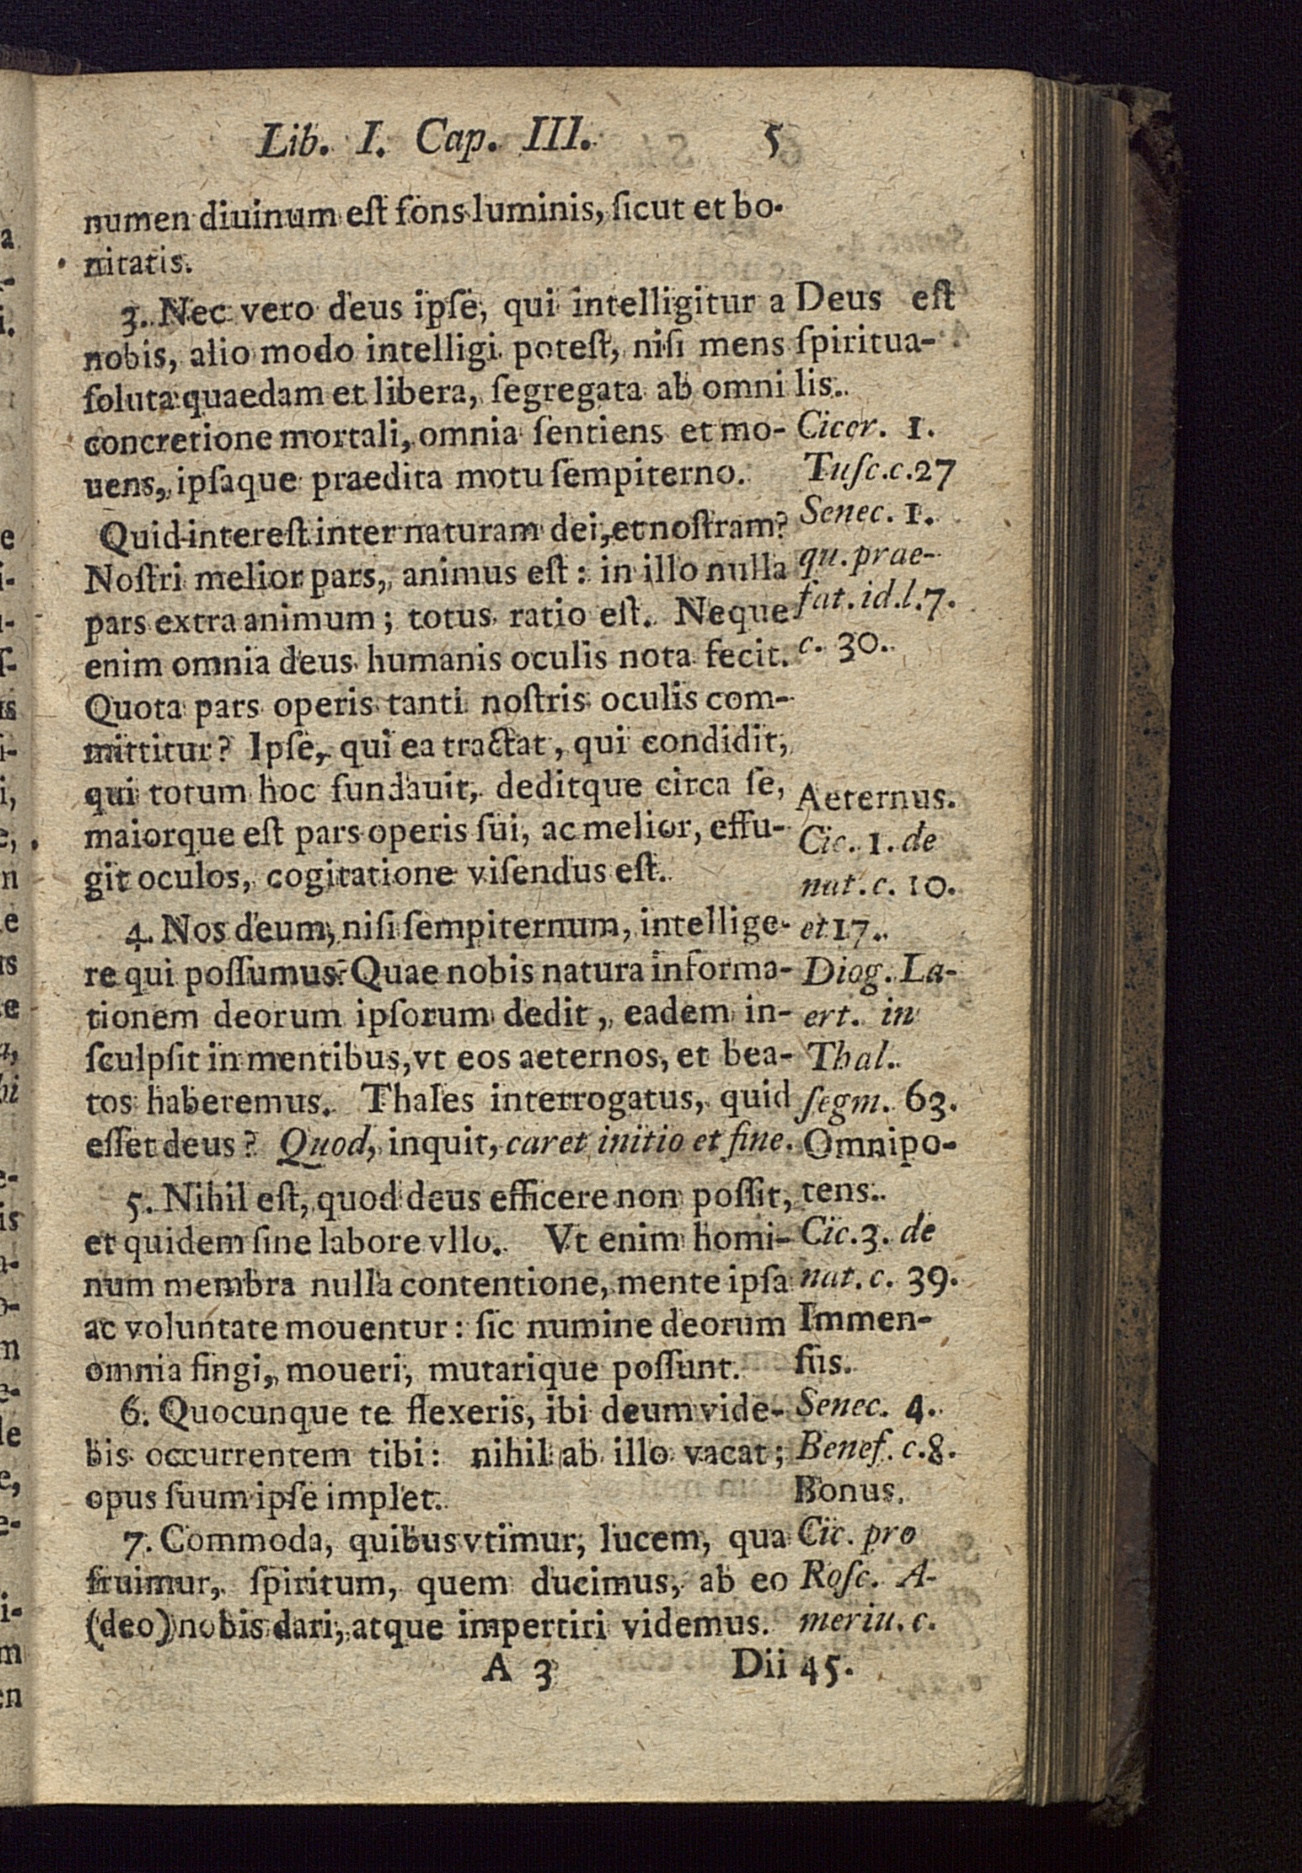 Lib. I. Cap. III. 5
numen diuinum est fons luminis, sicut et bo-
nitatis.
3. Nec vero deus ipse, qui intelligitur a
nobis, alio modo intelligi potest, nisi mens
soluta quaedam et libera, segregata ab omni
concretione mortali, omnia sentiens et mo-
uens, ipsaque praedita motu sempiterno.
Quid interest inter naturam dei, et nostram?
Nostri melior pars, animus est: in illo nulla
pars extra animum; totus ratio est. Neque
enim omnia deus humanis oculis nota fecit.
Quota pars operis tanti nostris oculis com-
mittitur? Ipse, qui ea tractat, qui condidit,
qui totum hoc fundauit, deditque circa se,
maiorque est pars operis sui, ac melior, effu-
git oculos, cogitatione visendus est.
4. Nos deum, nisi sempiternum, intellige-
re qui possumus? Quae nobis natura informa-
tionem deorum ipsorum dedit, eadem in-
sculpsit in mentibus, vt eos aeternos, et bea-
tos haberemus. Thales interrogatus, quid
esset deus? Quod, inquit, caret initio et fine.
5. Nihil est, quod deus efficere non possit,
et quidem sine labore vllo. Vt enim homi-
num membra nulla contentione, mente ipsa
ac voluntate mouentur: sic numine deorum
omnia fingi, moueri, mutarique possunt.
6. Quocunque te flexeris, ibi deum vide-
bis occurrentem tibi: nihil ab illo vacat;
opus suum ipse implet.
7. Commoda, quibus vtimur, lucem, qua
fruimur, spiritum, quem ducimus, ab eo
(deo) nobis dari, atque impertiri videmus.
A 3 Dii
Deus est
spiritua-
lis.
Cicer. 1.
Tusc. c. 27
Senec. 1.
qu. prae-
fat. id. l. 7.
c. 30.
Aeternus.
Cic. 1. de
nat. c. 10.
et 17.
Diog. La-
ert. in
Thal.
segm. 63.
Omnipo-
tens.
Cic. 3. de
nat. c. 39.
Immen-
sus.
Senec. 4.
Benef. c. 8.
Bonus.
Cic. pro
Rosc. A-
meriu. c.
45.